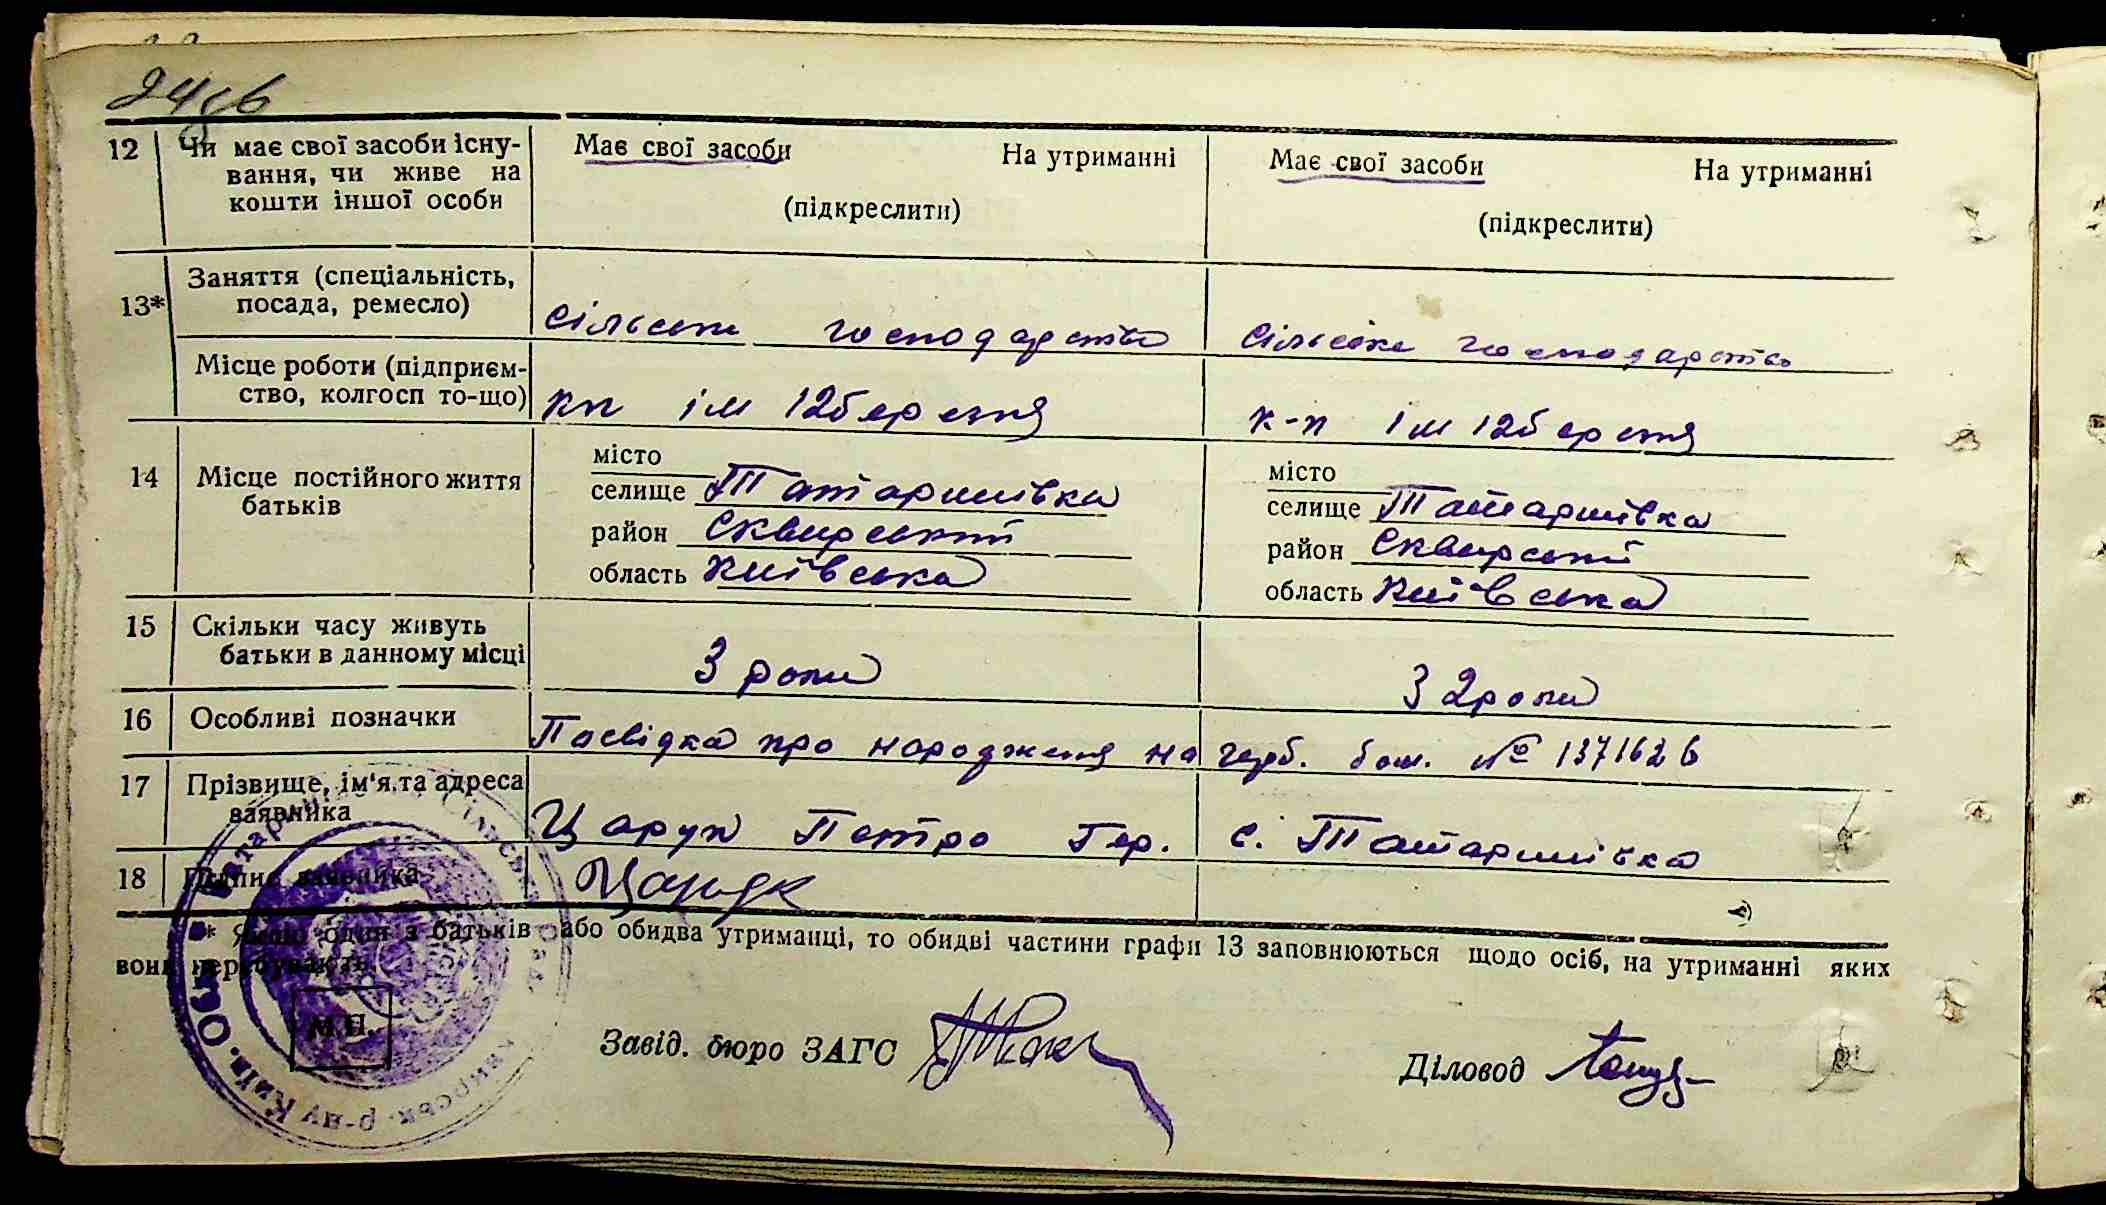 12 Чи має свої засоби існу-
вання, чи живе на
кошти іншої особи
Має свої засоби На утриманні
(підкреслити)
Має свої засоби На утриманні
(підкреслити)
13* Заняття (спеціальність,
посада, ремесло)
сільське господарство
сільське господарство
Місце роботи (підприєм-
ство, колгосп то-що)
кп ім 12 березня
к-п ім 12 березня
14 Місце постійного життя
батьків
місто
селище Татаршівка
район Сквирський
область Київська
місто
селище Татаршівка
район Сквирський
область Київська
15 Скільки часу живуть
батьки в данному місці
3 роки
32 роки
16 Особливі позначки
Посвідка про народження на герб. бом. № 137162 б
17 Прізвище, ім'я та адреса
заявника
Царук Петро Гер. с. Татаршівка
18 Підпис заявника
Царук
* Якщо один з батьків або обидва утриманці, то обидві частини графи 13 заповнюються щодо осіб, на утриманні яких
вони перебувають.
М.П.
Завід. бюро ЗАГС
Діловод